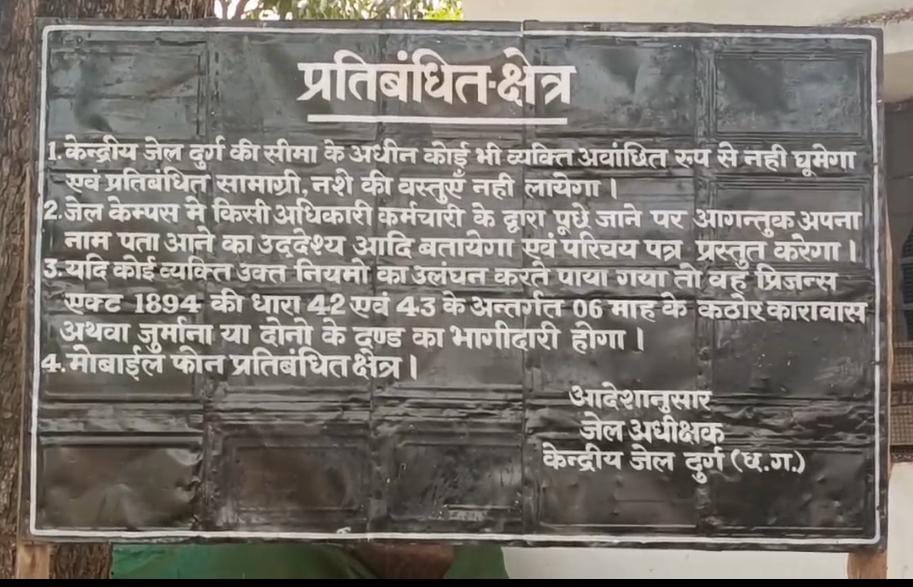 प्रतिबंधित-क्षेत्र
1. केन्द्रीय जेल दुर्ग की सीमा के अधीन कोई भी व्यक्ति अवांधित रुप से नही घूमेगा
एवं प्रतिबंधित सामाग्री, नशे की वस्तुएँ नही लायेगा।
2. जेल केम्पस मे किसी अधिकारी कर्मचारी के द्वारा पूछे जाने पर आगन्तुक अपना
नाम पता आने का उद्देश्य आदि बतायेगा एवं परिचय पत्र प्रस्तुत करेगा।
3. यदि कोई व्यक्ति उक्त नियमो का उलंघन करते पाया गया तो वह प्रिजन्स
एक्ट 1894 की धारा 42 एवं 43 के अन्तर्गत 06 माह के कठोर कारावास
अथवा जुर्माना या दोनो के दण्ड का भागीदारी होगा।
4. मोबाईल फोन प्रतिबंधित क्षेत्र।
आदेशानुसार
जेल अधीक्षक
केन्द्रीय जेल दुर्ग (छ.ग.)